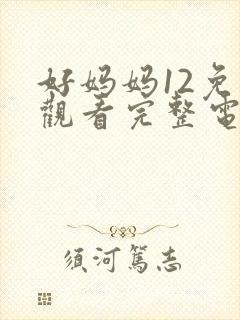 好妈妈12免
觀看完整電
须河篤志